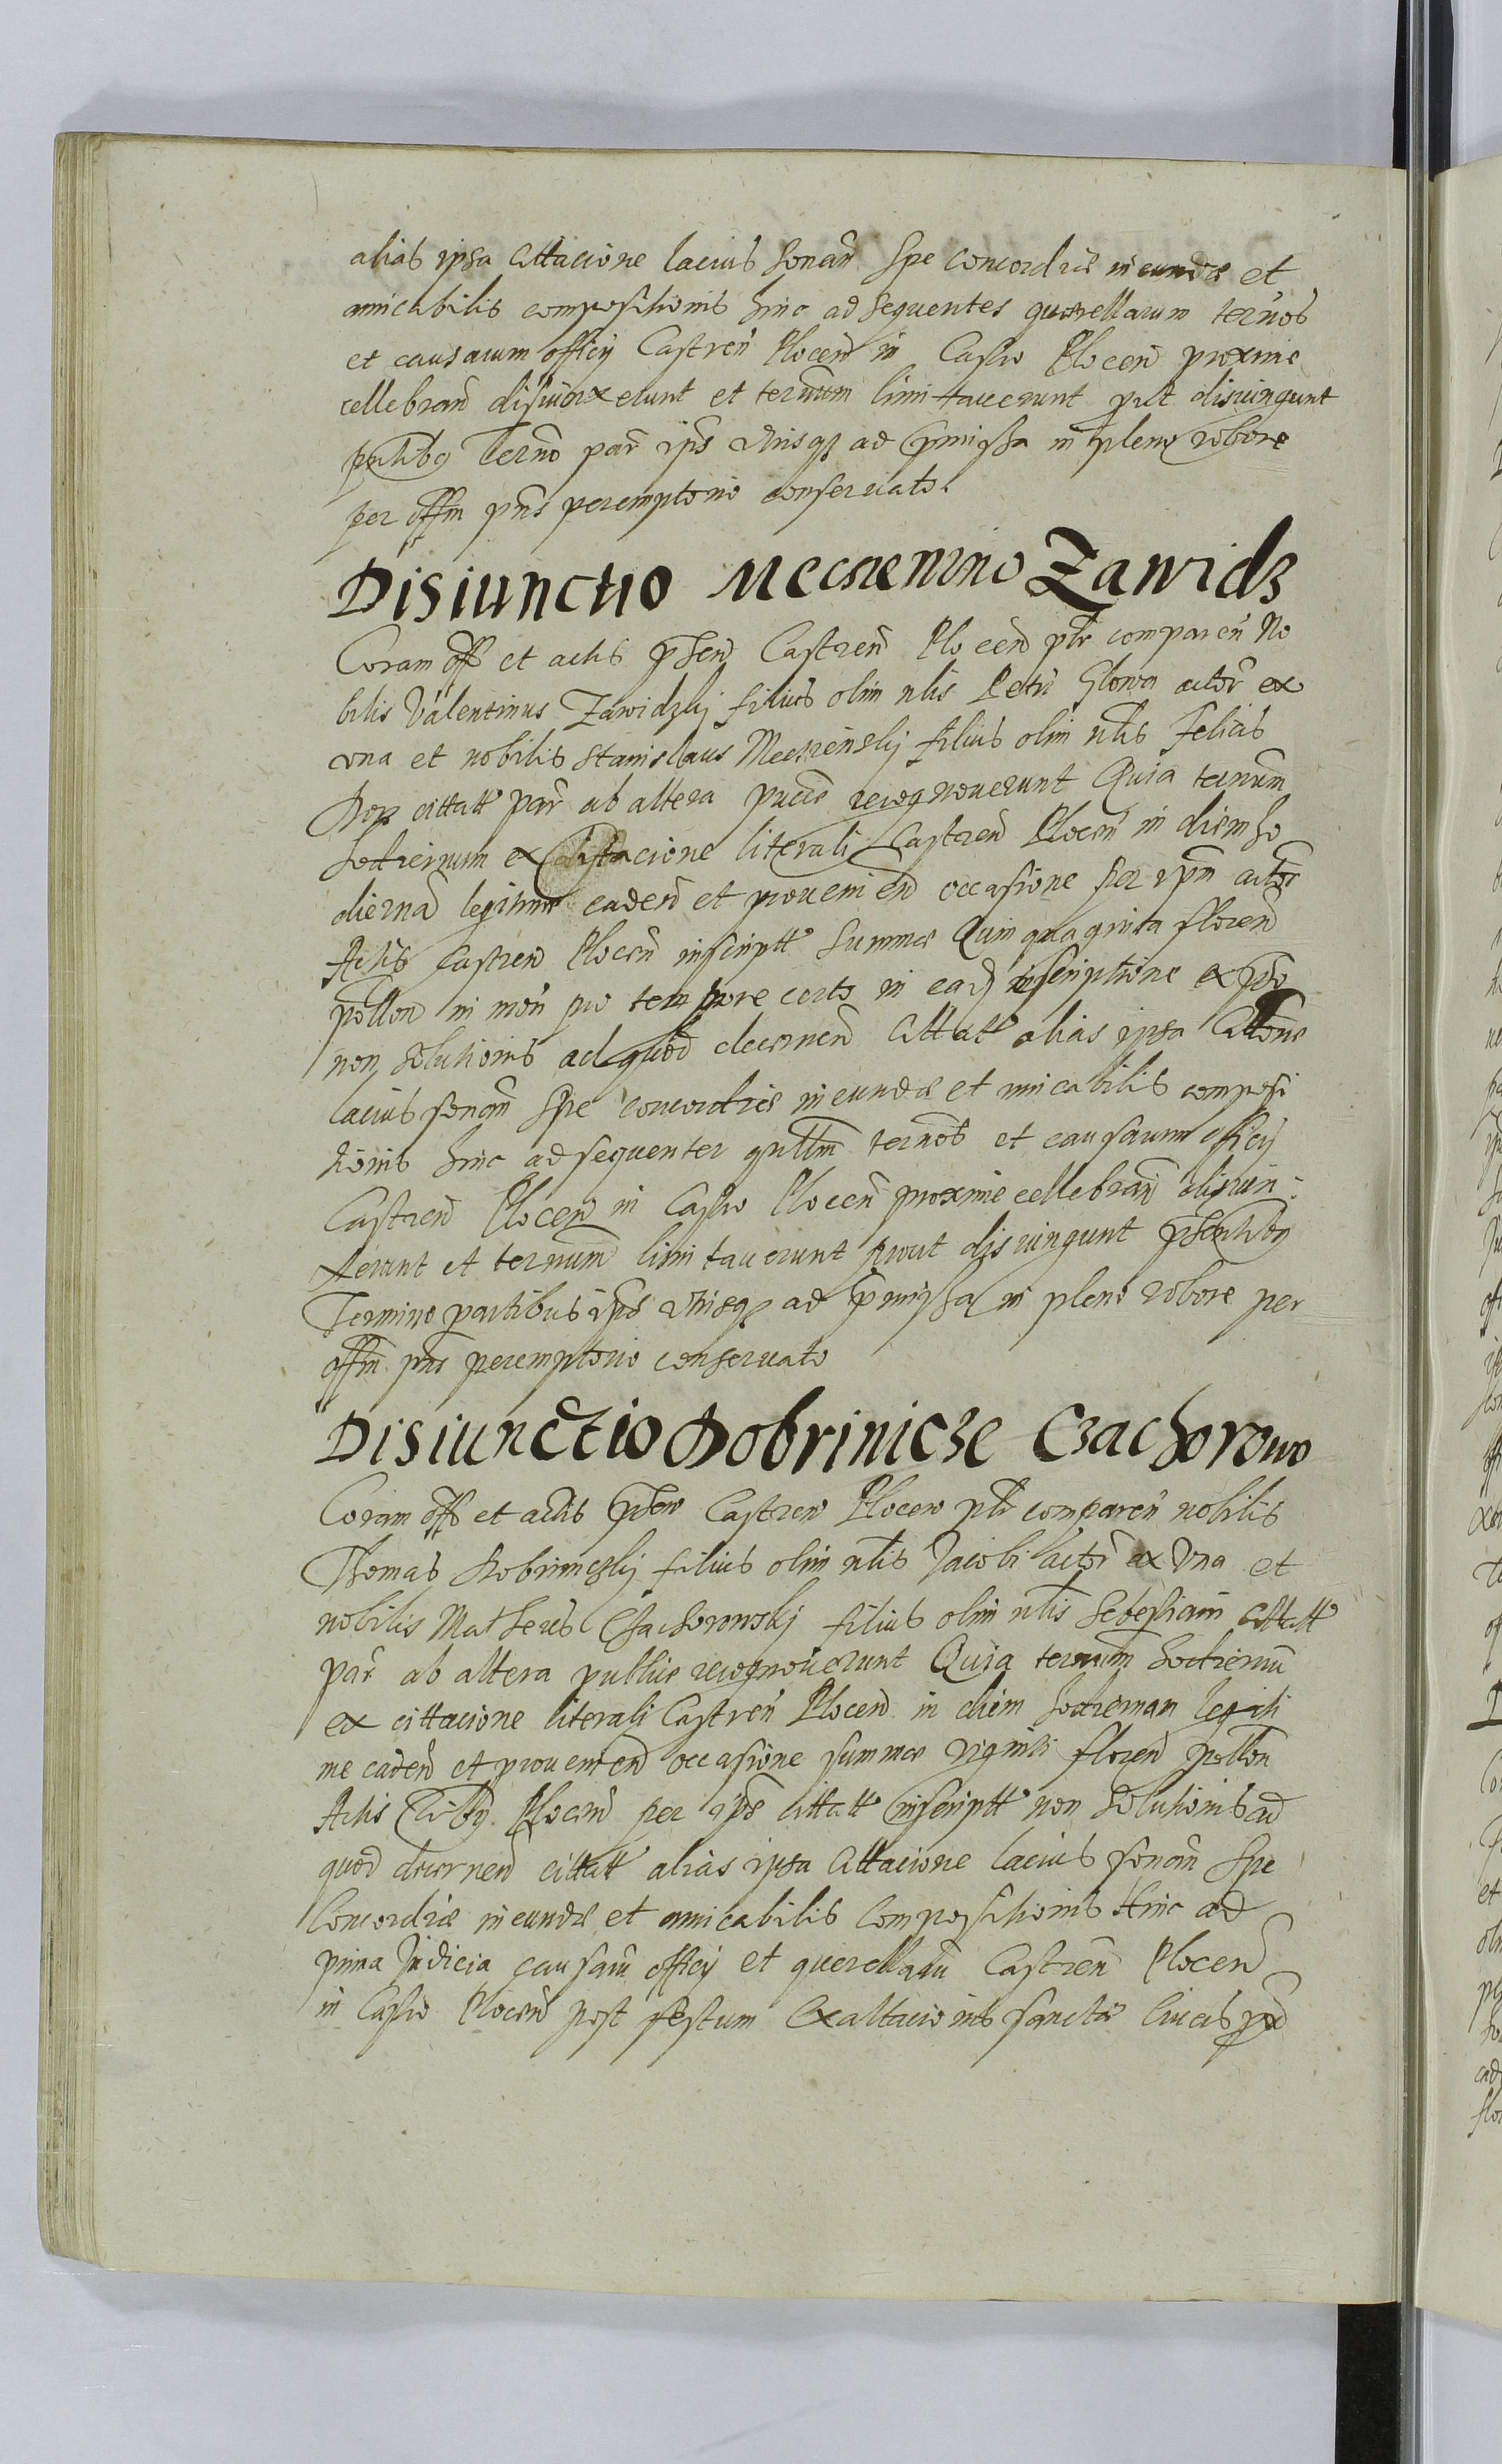 alias ipsa Cittacione lacius sonan Spe Concordiæ ineundæ et
amicabilis compositionis hinc ad sequentes querellarum ternos
et causarum officij Castren Plocen in Castro Plocen proxime
cellebran disiunxerunt et ternum limitauerunt prut disiungunt
Terno par ips vtrisq ad pmissa in pleno robore
per offm pns peremptorio conseruato.
Disiunctio Meczienino Zawidz
Coram offo et actis psen Castren Plocen plr comparen No
bilis Valentinus Zawidzkij filius olim nlis Petri Glowa actor ex
vna et nobilis Stanislaus Meczienskij filius olim nlis Felicis
cittatt par ab altera recognouerunt Quia ternum
hodiernum ex cittacione literali Castren Plocen in diem ho
diernã legitime caden et prouenien occasione per ipm actor
Actis Castren Plocen inscriptt summæ Quinquaginta floren
pollon in mon pro tempore certo in ead inscriptione expsso
non solutionis ad quod decernen cittatt alias ipsa Cittone
lacius sonan Spe concordiæ ineundæ et amicabilis composi
tionis hinc ad sequenter qrllm ternos et causarum officij
Castren Plocen in Castro Plocen proxime cellebran disiun:
xerunt et ternum limitauerunt prout disiungunt
Termino partibus ips vtrisq ad pmissa in pleno robore per
offm pns peremptorio conseruato
Disiunctio Dobrinicze Czachorowo
Coram offo et actis psen Castren Plocen plr comparen nobilis
Thomas Dobriniczkij filius olim nlis Jacobi actor ex Vna et
nobilis Matheus Czachorowskj filius olim nlis Sebestiani cittatt
par ab altera publice recognouerunt Quia ternum hodiernũ
ex cittacione literali Castren Plocen in diem hodiernam legiti
me caden et prouenien occasione summæ viginti floren pollon
Actis Plocen per ips cittatt inscriptt non solutionis ad
quod decernen cittatt alias ipsa Cittacione lacius sonan Spe
Concordiæ ineundæ et amicabilis Compositionis Hinc ad
prima Judicia causarũ officij et querellarũ Castren Plocen
in Castro Plocen post festum Exaltacionis sanctæ Crucis